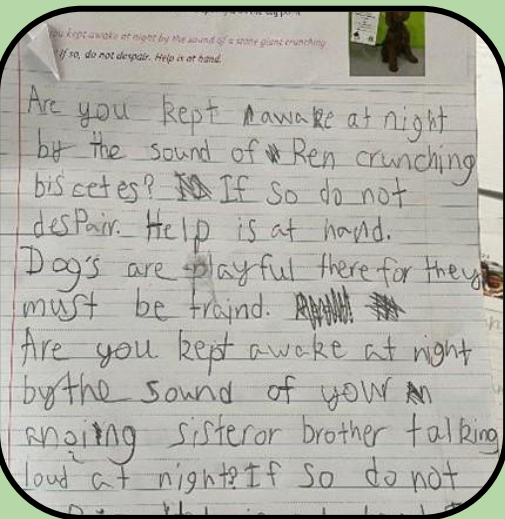 you kept awake at night by the sound of a stone giant crunching
If so, do not despair. Help is at hand.
Are you kept awake at night
by the sound of Ren crunching
biscetes? If so do not
desPair. Help is at hand.
Dog's are playful there for they
must be traind.
Are you kept awake at night
by the sound of yowr
anoiing sisteror brother talking
loud at night? If so do not